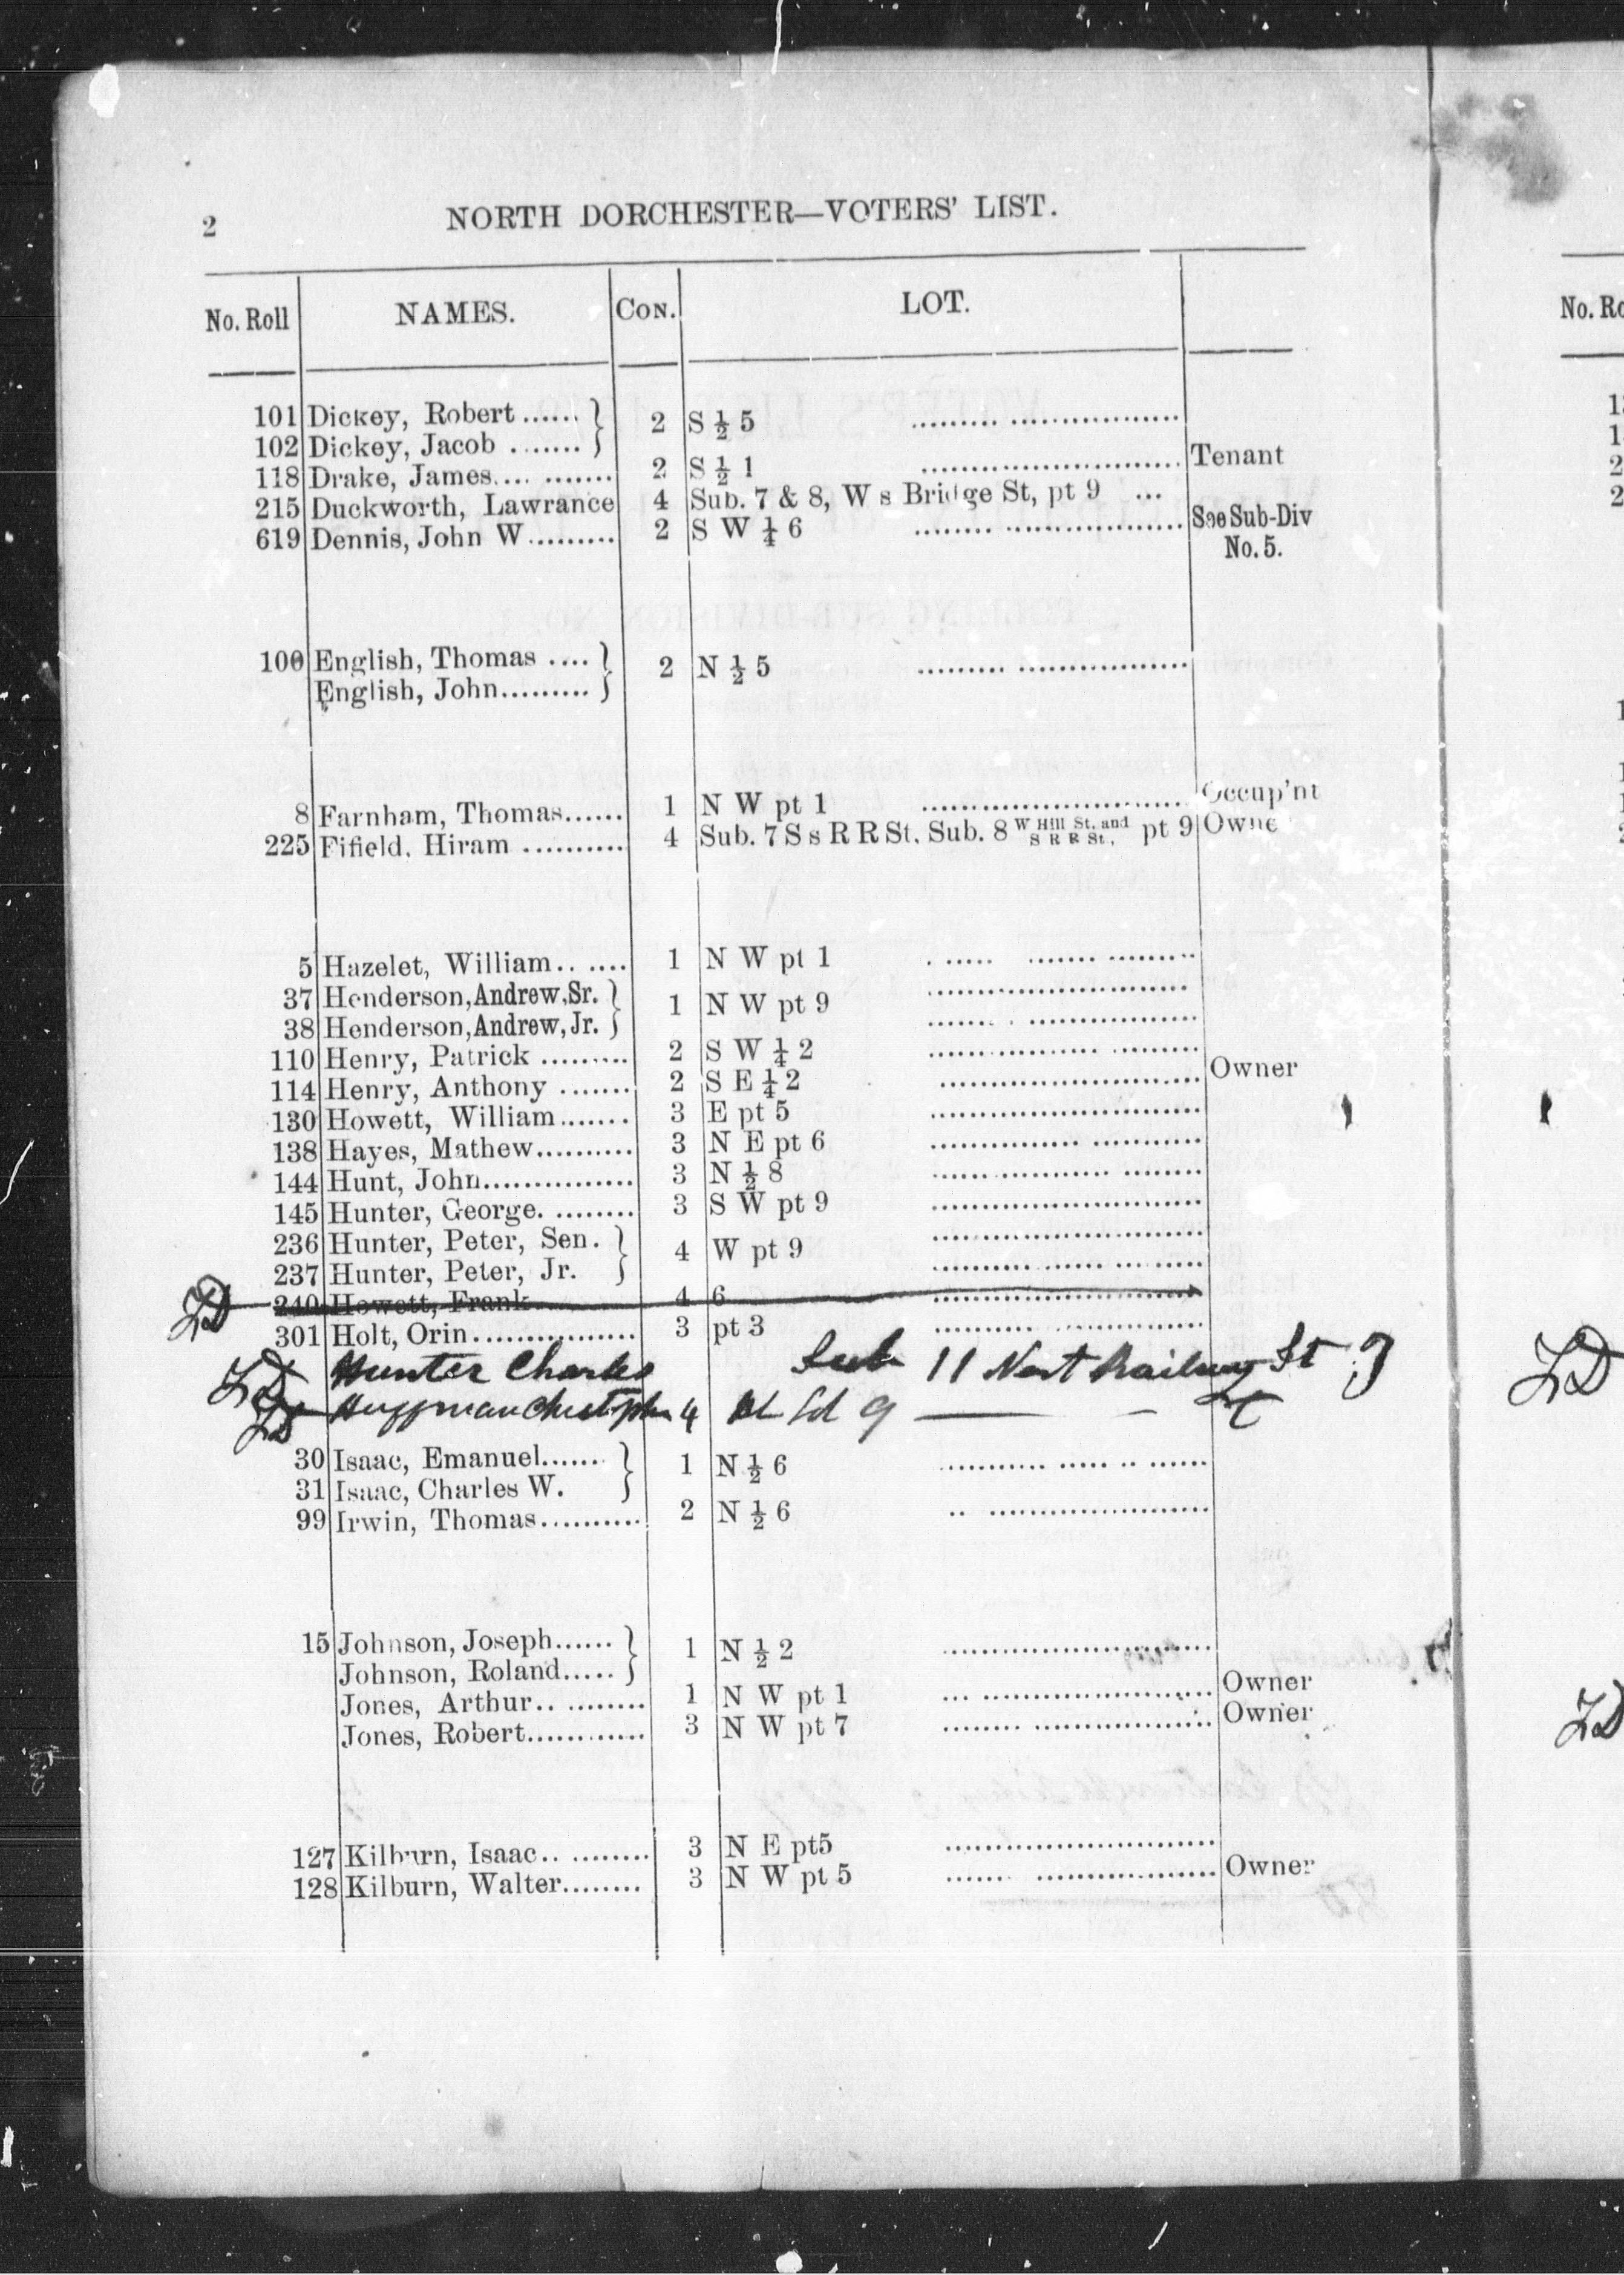 2 NORTH DORCHESTER—VOTERS' LIST.
No. Roll NAMES. CON. LOT.
101 Dickey, Robert ...... } 2 S ½ 5
102 Dickey, Jacob ....... }
118 Drake, James ........... 2 S ½ 1 Tenant
215 Duckworth, Lawrance 4 Sub. 7 & 8, W s Bridge St, pt 9 ...
619 Dennis, John W ......... 2 S W ¼ 6 See Sub-Div No. 5.
100 English, Thomas .... } 2 N ½ 5
English, John ......... }
8 Farnham, Thomas ...... 1 N W pt 1 Occup'nt
225 Fifield, Hiram .......... 4 Sub. 7 S s R R St, Sub. 8 W Hill St. and S R R St. pt 9 Owne
5 Hazelet, William ...... 1 N W pt 1
37 Henderson, Andrew, Sr. } 1 N W pt 9
38 Henderson, Andrew, Jr. }
110 Henry, Patrick ......... 2 S W ¼ 2
114 Henry, Anthony ....... 2 S E ¼ 2 Owner
130 Howett, William ....... 3 E pt 5
138 Hayes, Mathew .......... 3 N E pt 6
144 Hunt, John ............... 3 N ½ 8
145 Hunter, George. ........ 3 S W pt 9
236 Hunter, Peter, Sen. } 4 W pt 9
237 Hunter, Peter, Jr. }
240 Howett, Frank 4 6
301 Holt, Orin ................ 3 pt 3
Hunter Charles Sub 11 West Railway St 9
Huffman 4 9
30 Isaac, Emanuel ...... } 1 N ½ 6
31 Isaac, Charles W. }
99 Irwin, Thomas .......... 2 N ½ 6
15 Johnson, Joseph ...... } 1 N ½ 2
Johnson, Roland ..... }
Jones, Arthur .......... 1 N W pt 1 Owner
Jones, Robert ............ 3 N W pt 7 Owner
127 Kilburn, Isaac .......... 3 N E pt5
128 Kilburn, Walter ........ 3 N W pt 5 Owner